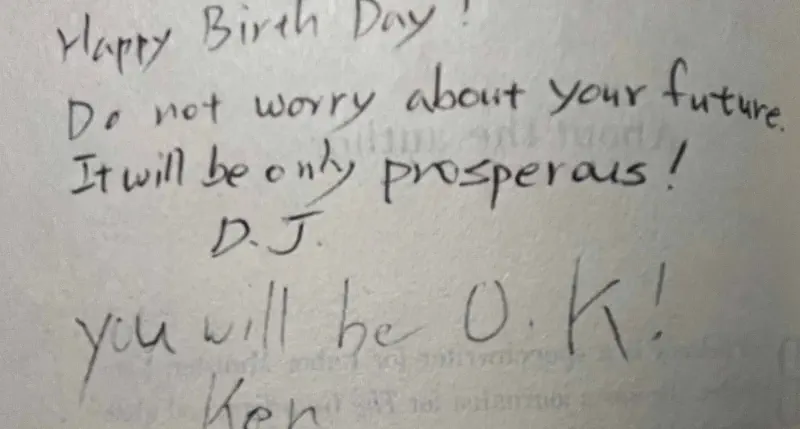 Happy Birth Day!
Do not worry about your future.
It will be only prosperous!
D.J.
you will be O.K!
Ken